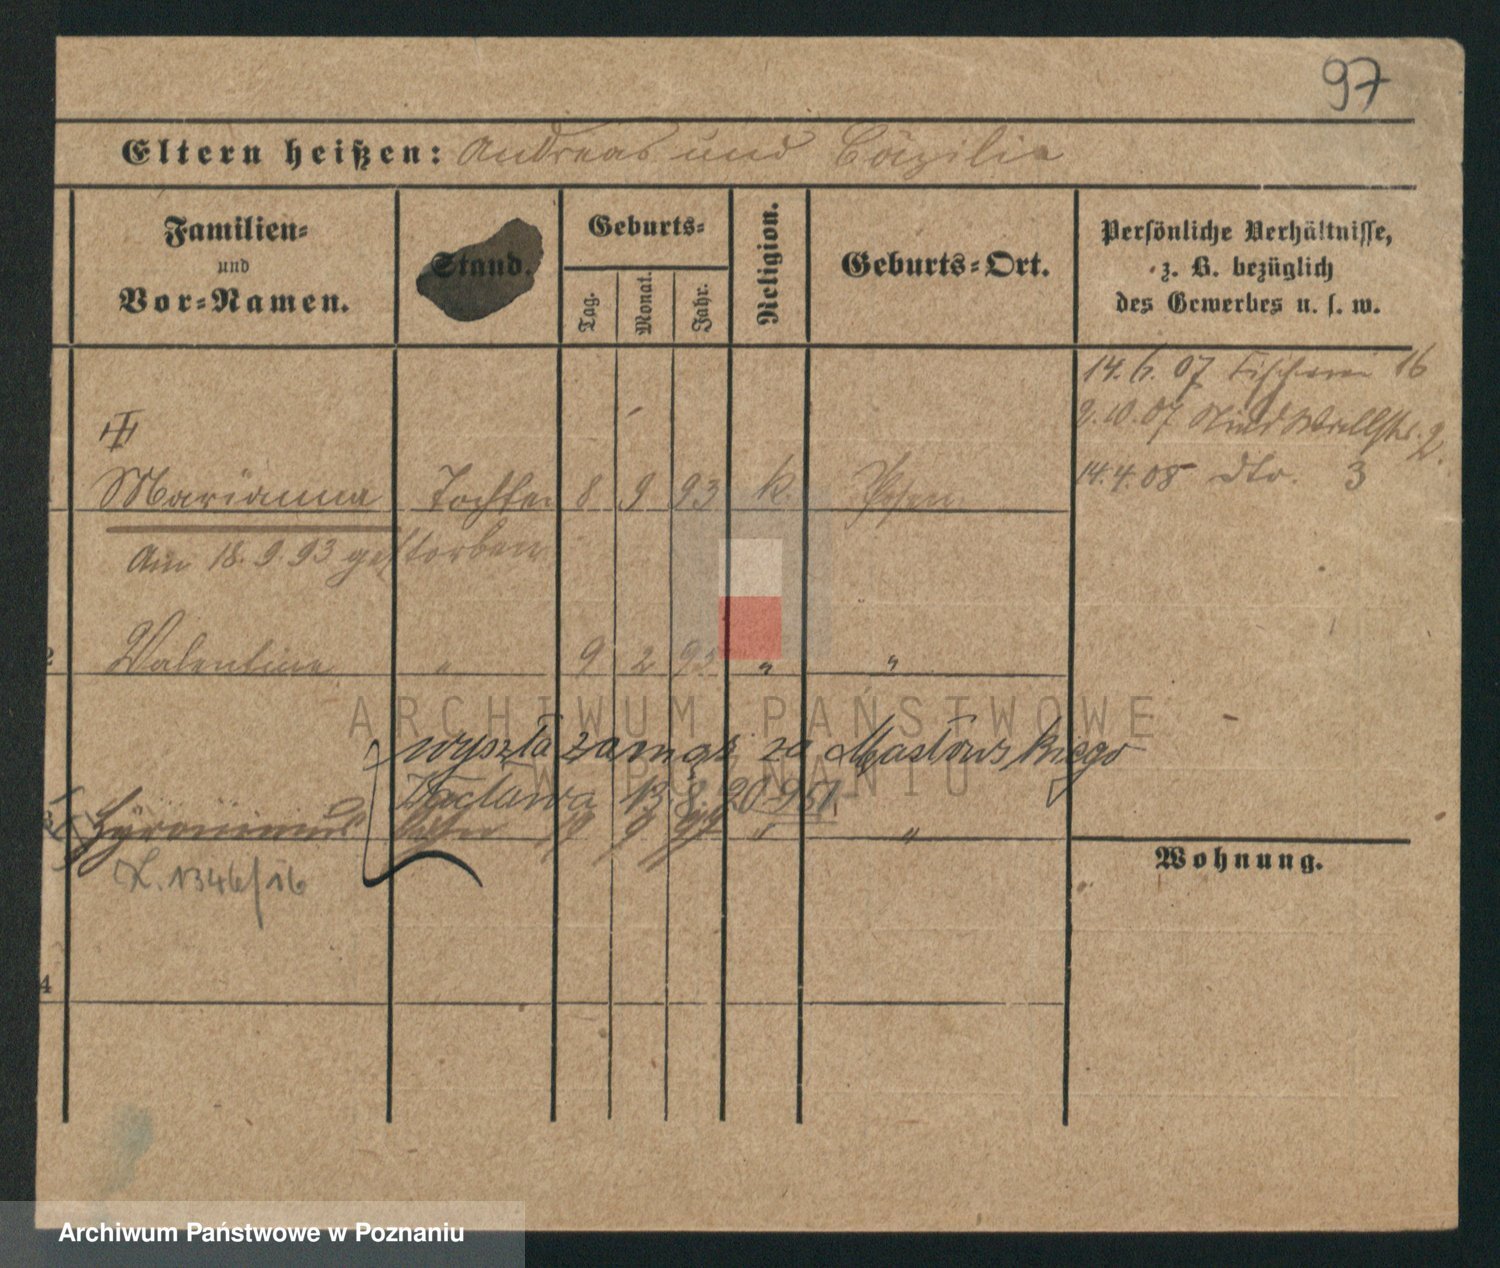 97
Eltern heißen: Andreas und Cäzilia
Familien-
und
Vor-Namen.
Stand.
Geburts-
Tag.
Monat.
Jahr.
Religion.
Geburts-Ort.
Persönliche Verhältnisse,
z. B. bezüglich
des Gewerbes u. s. w.
14. 6. 07 Fischerei 16
2. 10. 07 Wallstr. 2.
14. 4. 08 dto. 3
Marianna Tochter 8 9 93 k. Posen
Am 18. 9. 93 gestorben
2 Valentine " 9 2 95 " "
wyszła zamąż za Masłowskiego
Wacława 13.8.20 951.
Hyronimus 9 " "
Z. 1346/16
Wohnung.
4
ARCHIWUM PAŃSTWOWE
W POZNANIU
Archiwum Państwowe w Poznaniu